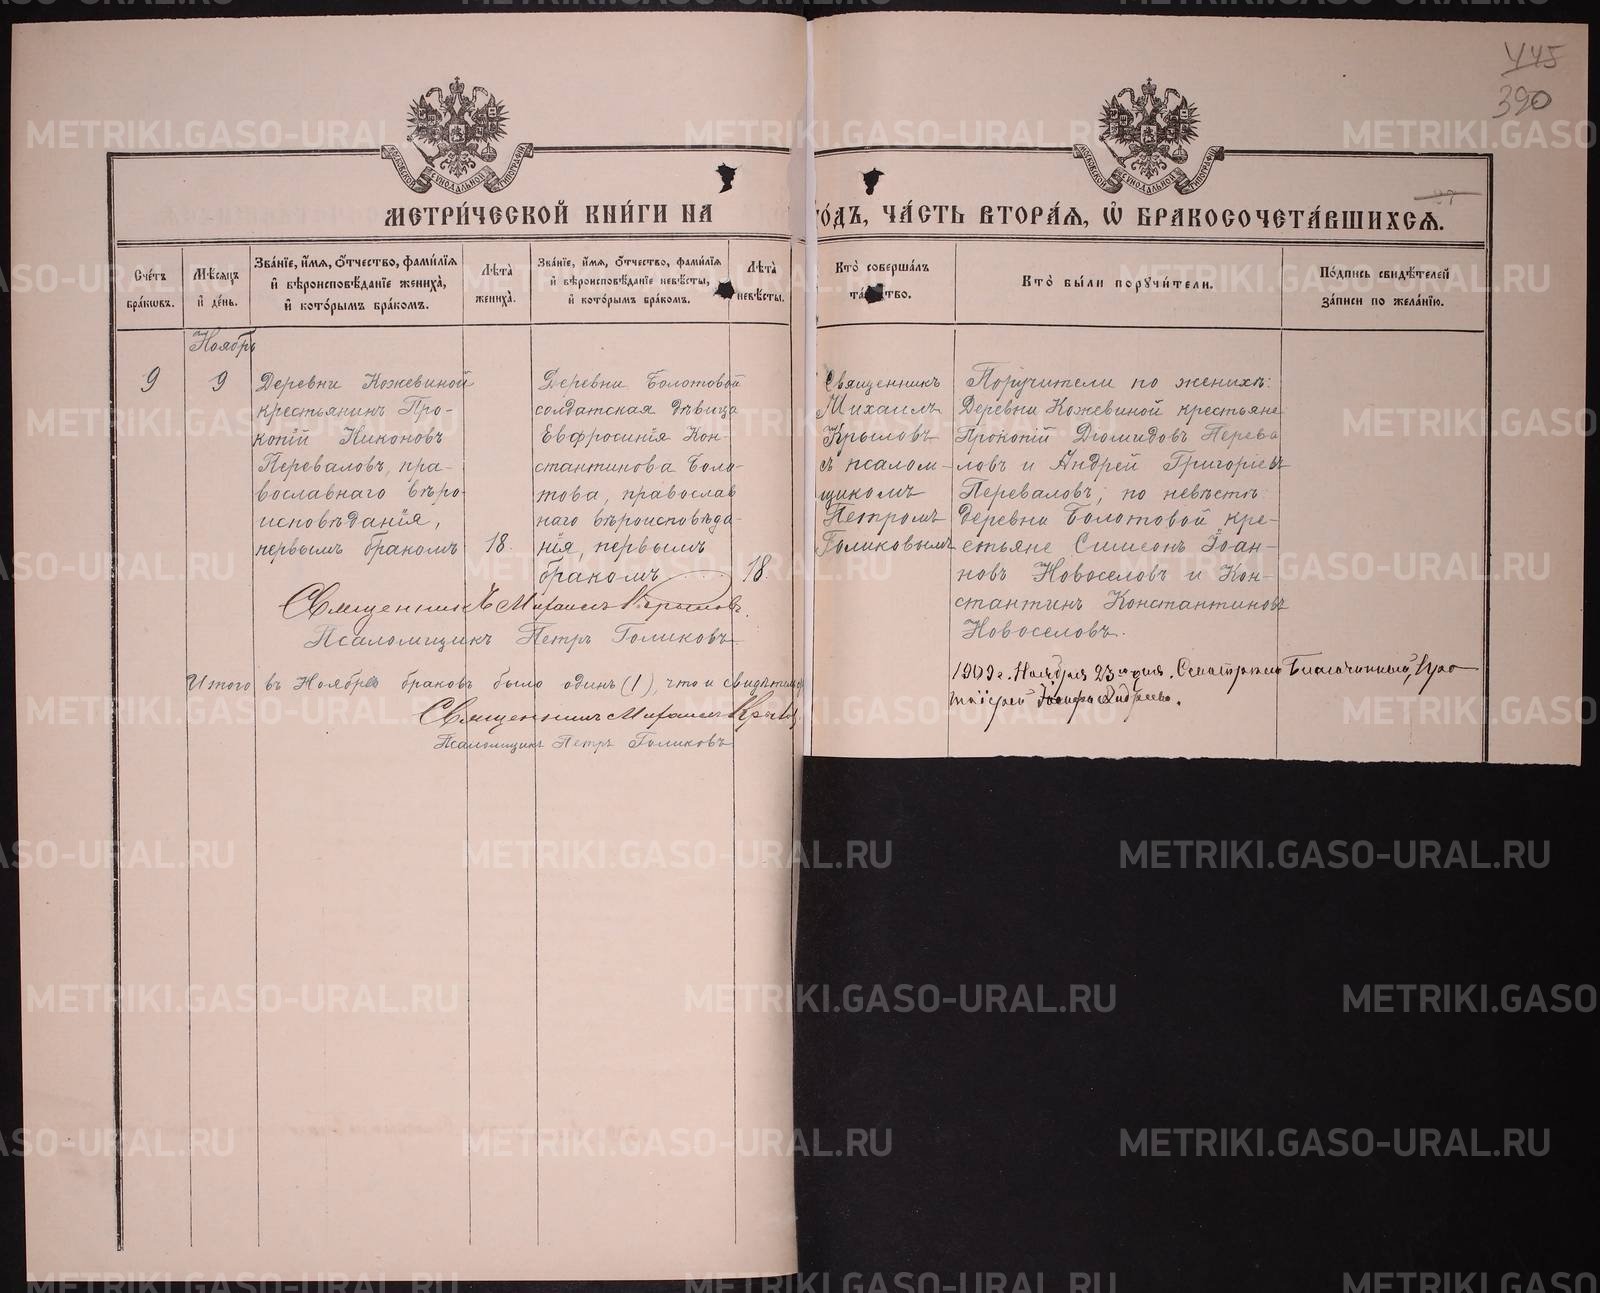 445
390
МОСКОВСКОЙ СѴНОДАЛЬНОЙ ТИПОГРАФІИ
МОСКОВСКОЙ СѴНОДАЛЬНОЙ ТИПОГРАФІИ
МЕТРИ́ЧЕСКОЙ КНИ́ГИ НА
ГО́ДЪ, ЧА́СТЬ ВТОРА́Я, Ѡ҆ БРАКОСОЧЕТА́ВШИХСЯ.
Сче́тъ бра́ковъ.
Мѣ́сяцъ и҆ де́нь.
Зва́нїе, и҆́мя, ѻ҆́тчество, фами́лїя и҆ вѣроисповѣ́данїе жениха̀, и҆ кото́рымъ бра́комъ.
Лѣ́та жениха̀.
Зва́нїе, и҆́мя, ѻ҆́тчество, фами́лїя и҆ вѣроисповѣ́данїе невѣ́сты, и҆ кото́рымъ бра́комъ.
Лѣ́та невѣ́сты.
Кто̀ соверша́лъ та́ инство.
Кто̀ бы́ли порꙋчи́тели.
По́дпись свидѣ́телей за́писи по жела́нїю.
Ноябрь
9
9
Деревни Кожевиной
крестьянинъ Про-
копій Никоновъ
Переваловъ, пра-
вославнаго вѣро-
исповѣданія,
первымъ бракомъ
18.
Деревни Болотовой
солдатская дѣвица
Евфросинія Кон-
стантинова Боло-
това, православ
наго вѣроисповѣда-
нія, первымъ
бракомъ
18.
Священникъ
Михаилъ
Крыловъ
съ псалом-
щикомъ
Петромъ
Голиковымъ
Поручители по женихѣ:
Деревни Кожевиной крестьяне
Прокопій Діомидовъ Перева
ловъ и Андрей Григорьевъ
Переваловъ; по невѣстѣ:
деревни Болотовой кре-
стьяне Симеонъ Іоан-
новъ Новоселовъ и Кон-
стантинъ Константиновъ
Новоселовъ.
Священникъ Михаилъ Крыловъ.
Псаломщикъ Петръ Голиковъ
Итого въ Ноябрѣ браковъ было одинъ (1), что и свидѣтельс
Священникъ Михаилъ Крылов
Псаломщикъ Петръ Голиковъ
1909 г. Ноября 23го дня. Благочинный, Про
тоіерей Іосифъ Андреевъ.
METRIKI.GASO-URAL.RU